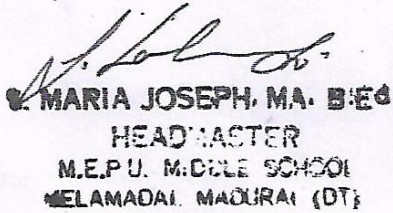 MARIA JOSEPH, MA. B.Ed
HEADMASTER
M.E.P.U. MIDDLE SCHOOL
MELAMADAI. MADURAI (DT)